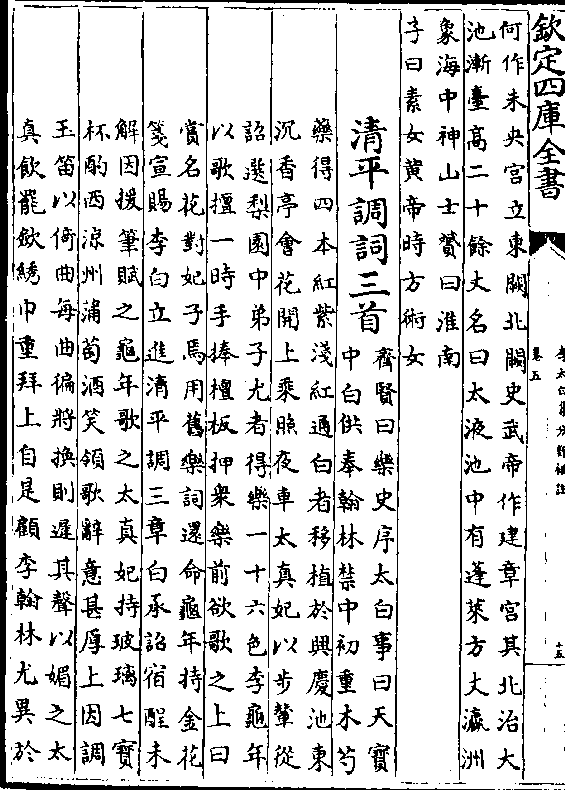 欽定四庫全書
李太白集分類補註
卷五
十五
何作未央宮立東闕北闕史武帝作建章宮其北治大
池漸臺高二十餘丈名曰太液池中有蓬萊方丈瀛洲
象海中神山士贇曰淮南
子曰素女黃帝時方術女
清平調詞三首
齊賢曰樂史序太白事曰天寶
中白供奉翰林禁中初重木芍
藥得四本紅紫淺紅通白者移植於興慶池東
沉香亭會花開上乘照夜車太真妃以步輦從
詔選梨園中弟子尤者得樂一十六色李龜年
以歌擅一時手捧檀板押衆樂前欲歌之上曰
賞名花對妃子焉用舊樂詞遽命龜年持金花
箋宣賜李白立進清平調三章白承詔宿酲未
解因援筆賦之龜年歌之太真妃持玻瓈七寶
杯酌西涼州蒲萄酒笑領歌辭意甚厚上因調
玉笛以倚曲每曲徧將換則遲其聲以媚之太
真飲罷歛綉巾重拜上自是顧李翰林尤異於